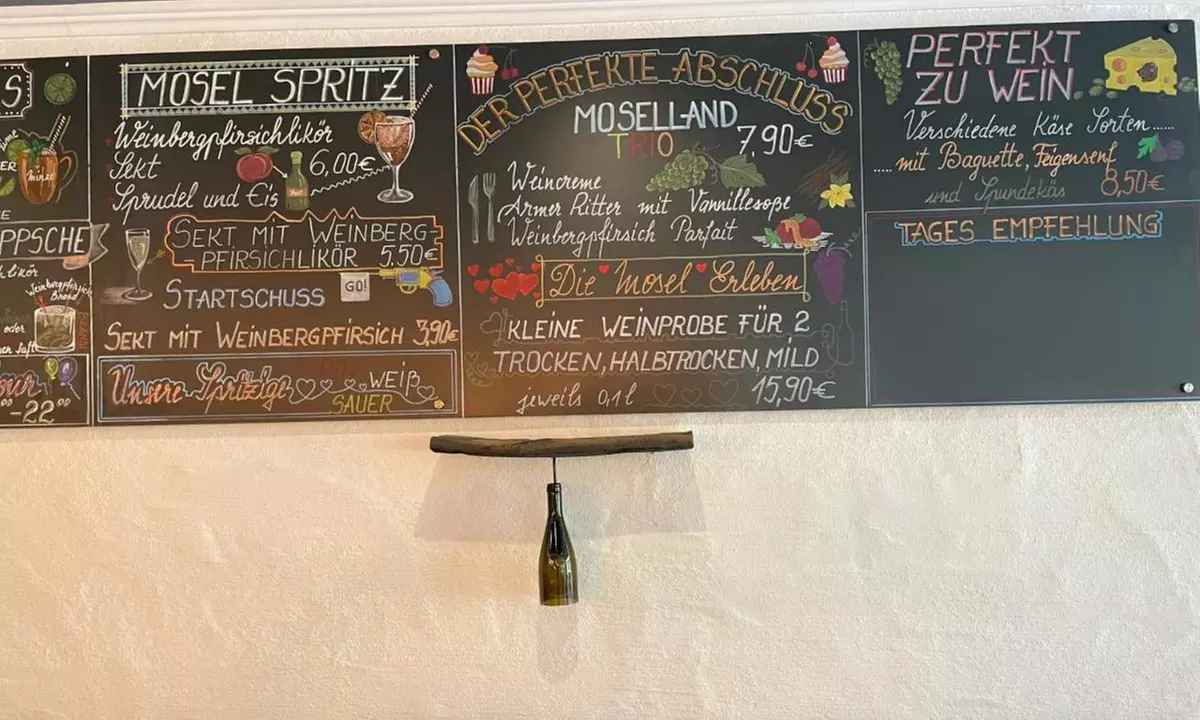 S
PPSCHE
Weinbergpfirsich
Brand
oder
-22⁰⁰
MOSEL SPRITZ
Weinbergpfirsichlikör
Sekt 6,00€
Sprudel und Eis
SEKT MIT WEINBERG-
-PFIRSICHLIKÖR 5,50€
STARTSCHUSS GO!
SEKT MIT WEINBERGPFIRSICH 3,90€
Unsere Spritzige WEIß
SAUER
DER PERFEKTE ABSCHLUSS
MOSELLAND
TRIO 7,90€
Weincreme
Armer Ritter mit Vannillesoße
Weinbergpfirsich Parfait
Die Mosel Erleben
KLEINE WEINPROBE FÜR 2
TROCKEN, HALBTROCKEN, MILD
jeweils 0,1 l 15,90€
PERFEKT
ZU WEIN
Verschiedene Käse Sorten......
..... mit Baguette, Feigensenf
und Spundekäs 8,50€
TAGES EMPFEHLUNG